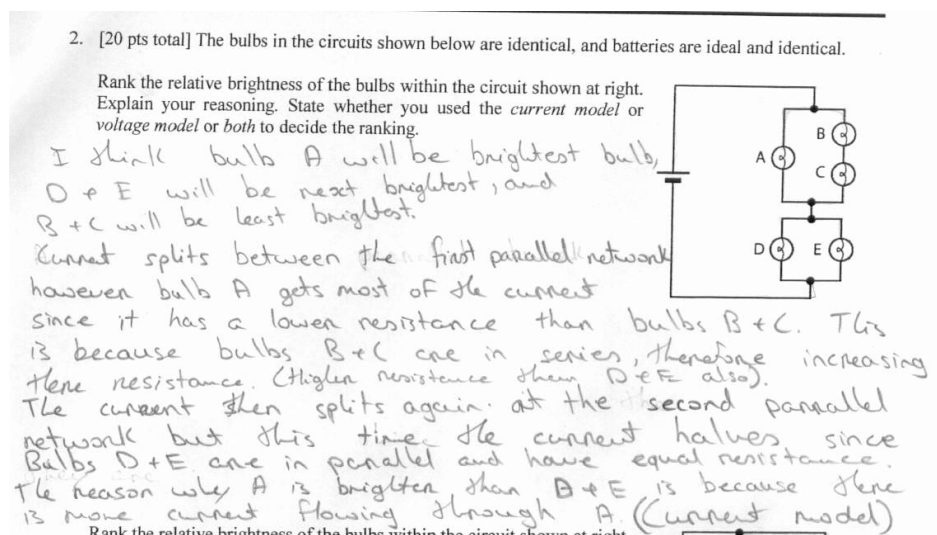 2. [20 pts total] The bulbs in the circuits shown below are identical, and batteries are ideal and identical.
Rank the relative brightness of the bulbs within the circuit shown at right.
Explain your reasoning. State whether you used the current model or
voltage model or both to decide the ranking.
I think bulb A will be brightest bulb,
D + E will be next brightest, and
B + C will be least brightest.
Current splits between the first parallel network
however bulb A gets most of the current
since it has a lower resistance than bulbs B + C. This
is because bulbs B + C are in series, therefore increasing
there resistance. (Higher resistance then D + E also).
The current then splits again at the second parrallel
network but this time the current halves since
Bulbs D + E are in parallel and have equal resistance.
The reason why A is brighter than D + E is because there
is more current flowing through A. (Current model)
Rank the relative brightness of the bulbs within the circuit shown at right
A
B
C
D
E